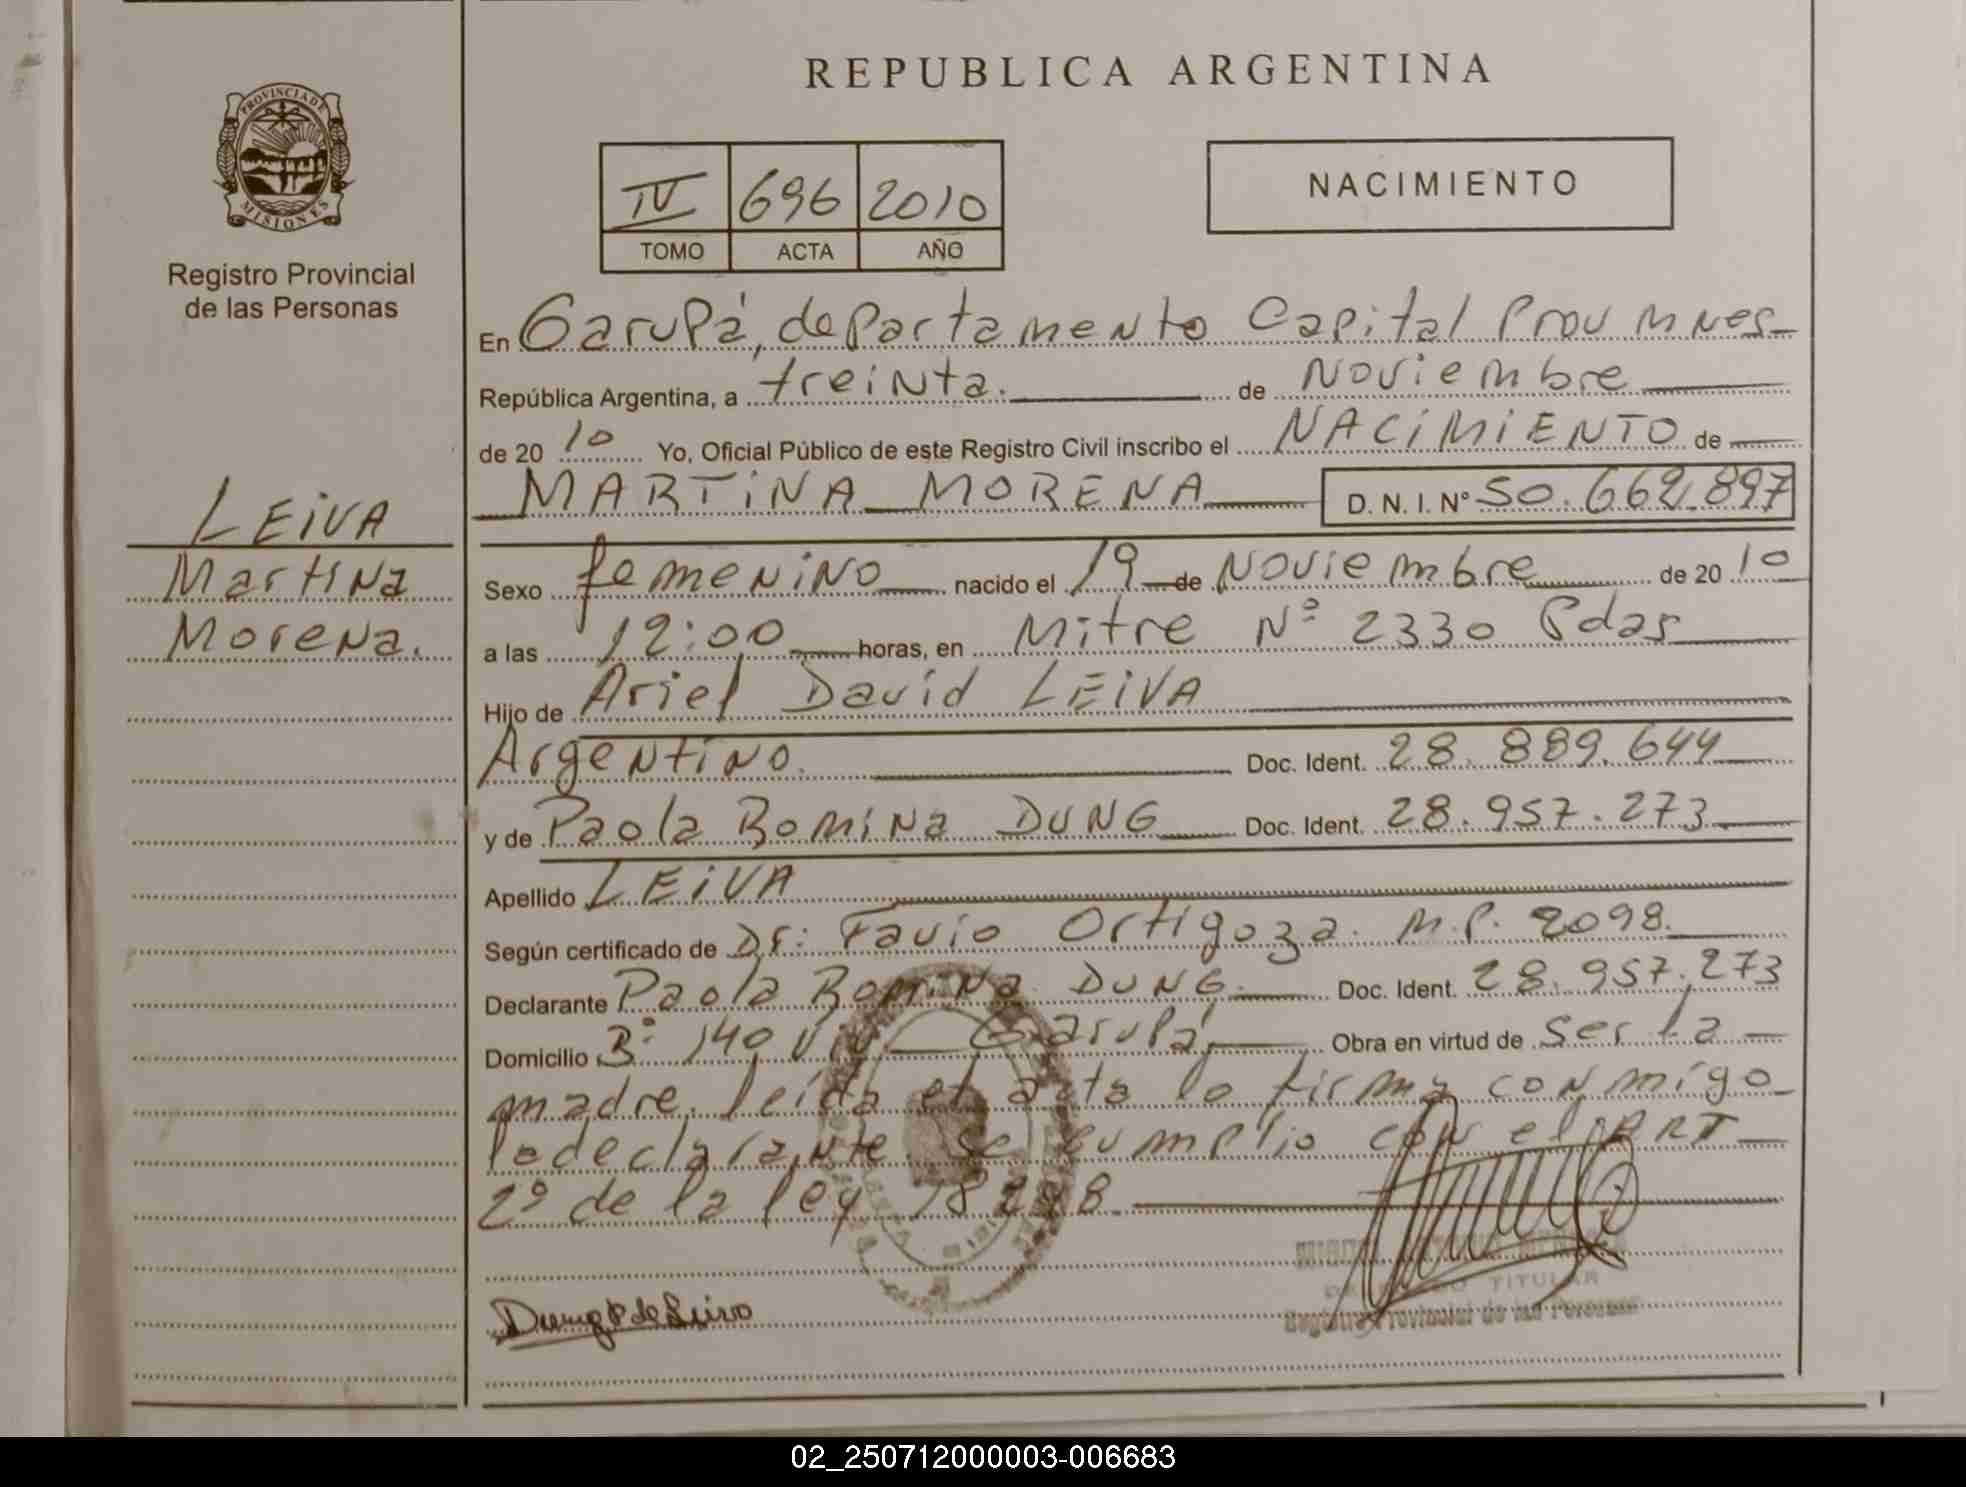 REPUBLICA ARGENTINA
PROVINCIA DE
MISIONES
Registro Provincial
de las Personas
IV 696 2010
TOMO ACTA AÑO
NACIMIENTO
LEIVA
Martina
Morena.
En Garupá, departamento Capital Prov Mnes
República Argentina, a treinta. de Noviembre
de 20 10 Yo, Oficial Público de este Registro Civil inscribo el NACIMIENTO de
MARTINA MORENA D. N. I. Nº 50.662.897
Sexo femenino nacido el 19 de Noviembre de 20 10
a las 12:00 horas, en Mitre Nº 2330 Pdas
Hijo de Ariel David LEIVA
Argentino. Doc. Ident. 28.889.644
y de Paola Romina DUNG Doc. Ident. 28.957.273
Apellido LEIVA
Según certificado de Dr: Favio Ortigoza. M.P. 2098.
Declarante Paola Romina DUNG. Doc. Ident. 28.957.273
Domicilio Bº 140 Viv Garupá, Obra en virtud de ser la
madre, leída el acta la firma conmigo
la declarante. se cumplio con el ART
2º de la ley 18248.
Dung P de Leiva
TITULAR
Registro Provincial de las Personas
02_250712000003-006683